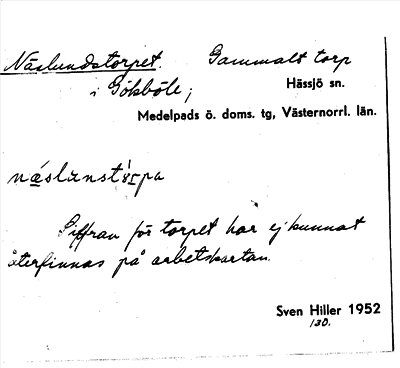 Näslundstorpet. Gammalt torp
i Gökböle; Hässjö sn.
Medelpads ö. doms. tg, Västernorrl. län.
näslunstårpa
Siffran för torpet har ej kunnat
återfinnas på arbetskartan.
Sven Hiller 1952
130.